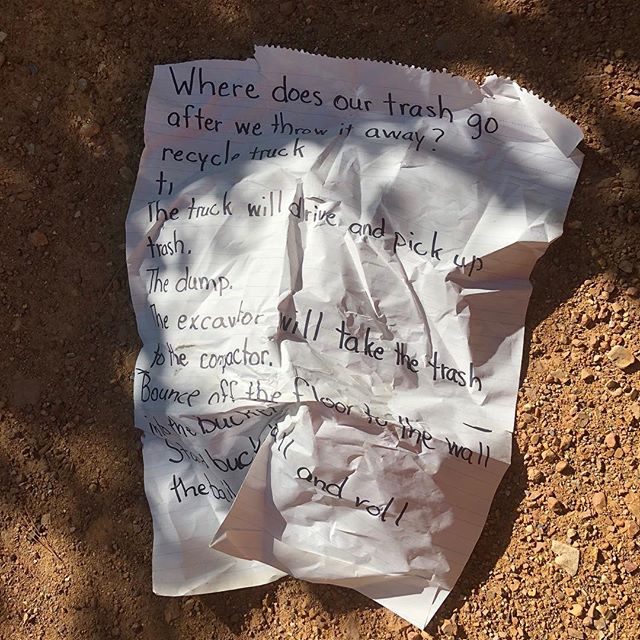 Where does our trash go
after we throw it away?
recycle truck
ti
The truck will drive and pick up
trash.
The dump.
The excavtor will take the trash
to the compactor.
Bounce off the floor to the wall
into the bucket
and roll
the ball